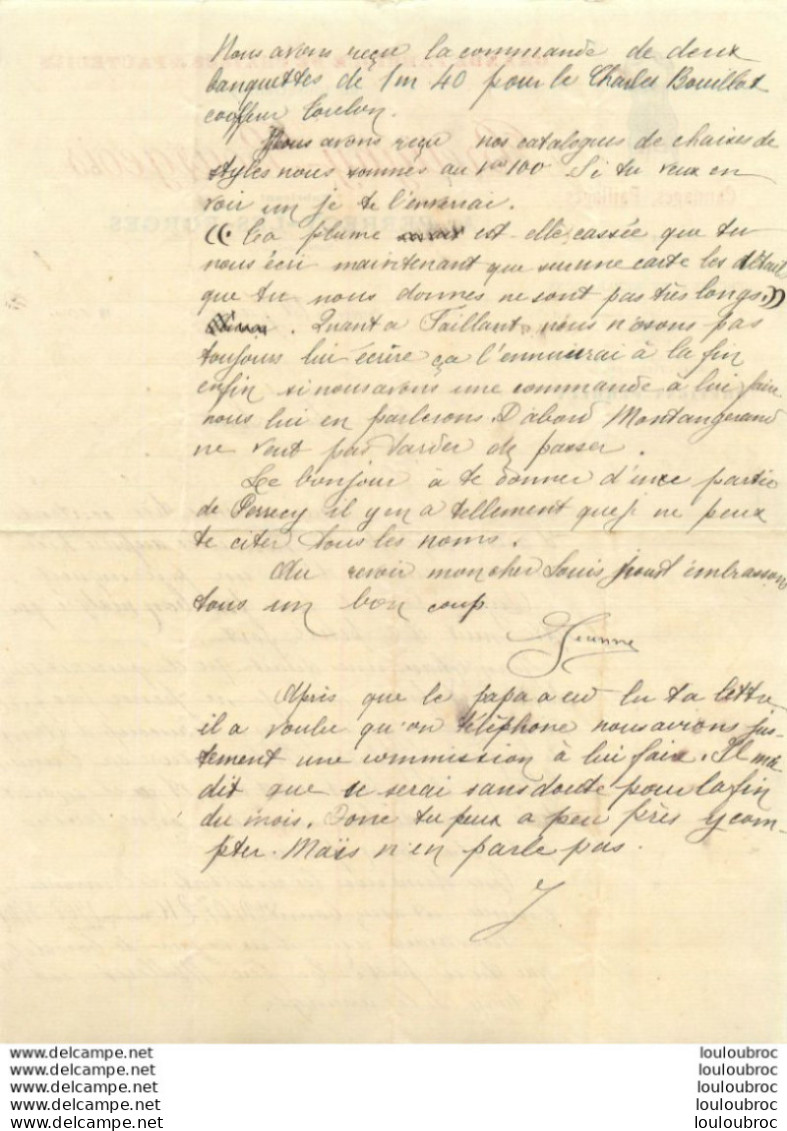 Nous avons reçu la commande de deux
banquettes de 1m 40 pour le Charles Bouillot
coiffeur Toulon.
Nous avons reçu nos catalogues de chaises de
styles nous sommes au 100 Si tu veux en
voir un je te l'enverrai.
((La plume est-elle cassée que tu
nous écri maintenant que sur une carte les détail
que tu nous donnes ne sont pas très longs.))
Quant a Taillant nous n'osons pas
toujours lui écrire ça l'ennuirai à la fin
enfin si nous avons une commande à lui faire
nous lui en parlerons D'abord Montangerand
ne veut pas tarder de passer.
Le bonjour à te donner d'une partie
de Perrecy il y en a tellement que je ne peux
te citer tous les noms.
Au revoir mon cher Louis embrassons
tous un bon coup.
Jeanne
Après que le papa a eu lu ta lettre
il a voulu qu'on téléphone nous avions jus-
tement une commission à lui faire. Il m'a
dit que se serai sans doute pour la fin
du mois. Donc tu peux a peu près y com-
pter. Maïs n'en parle pas.
J
www.delcampe.net
www.delcampe.net
www.delcampe.net
www.delcampe.net
www.delcampe.net
louloubroc
louloubroc
louloubroc
louloubroc
louloubroc